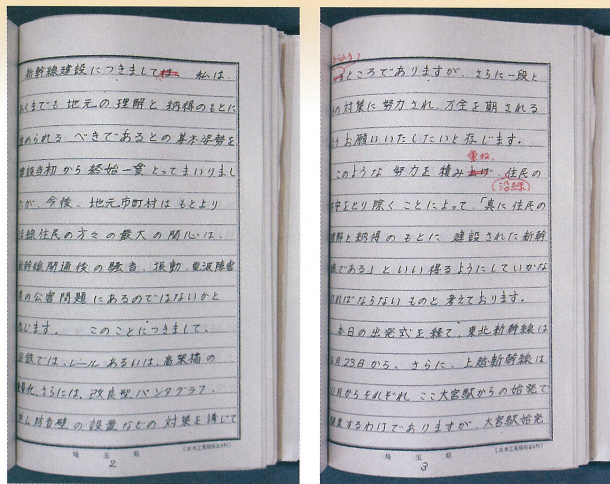 新幹線建設につきましては 私は、
あくまでも地元の理解と納得のもとに
進められるべきであるとの基本姿勢を
建設当初から終始一貫とってまいりまし
たが、今後、地元市町村はもとより
沿線住民の方々の最大の関心は、
新幹線開通後の騒音、振動、電波障害
等の公害問題にあるのではないかと
存じます。 このことにつきまして、
国鉄では、レールあるいは、高架橋の
量化、さらには、改良型パンタグラフ、
逆L防音壁の設置などの対策を講じて
埼玉県
2
ところでありますが、さらに一段と
の対策に努力され、万全を期される
ようお願いいたしたいと存じます。
重ね
このような努力を積み上げ、住民の
沿線
不安をとり除くことによって、「真に住民の
理解と納得のもとに 建設された新幹
線である」といい得るようにしていかな
ければならないものと考えております。
本日の出発式を経て、東北新幹線は
6月23日から、さらに、上越新幹線は
11月からそれぞれ、ここ大宮駅からの始発で
開業するわけでありますが、大宮駅始発
埼玉県
3